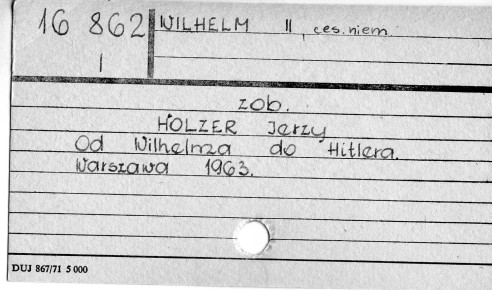 16 862 WILHELM II, ces. niem.
I
zob.
HOLZER Jerzy
Od Wilhelma do Hitlera.
Warszawa 1963.
DUJ 867/71 5 000